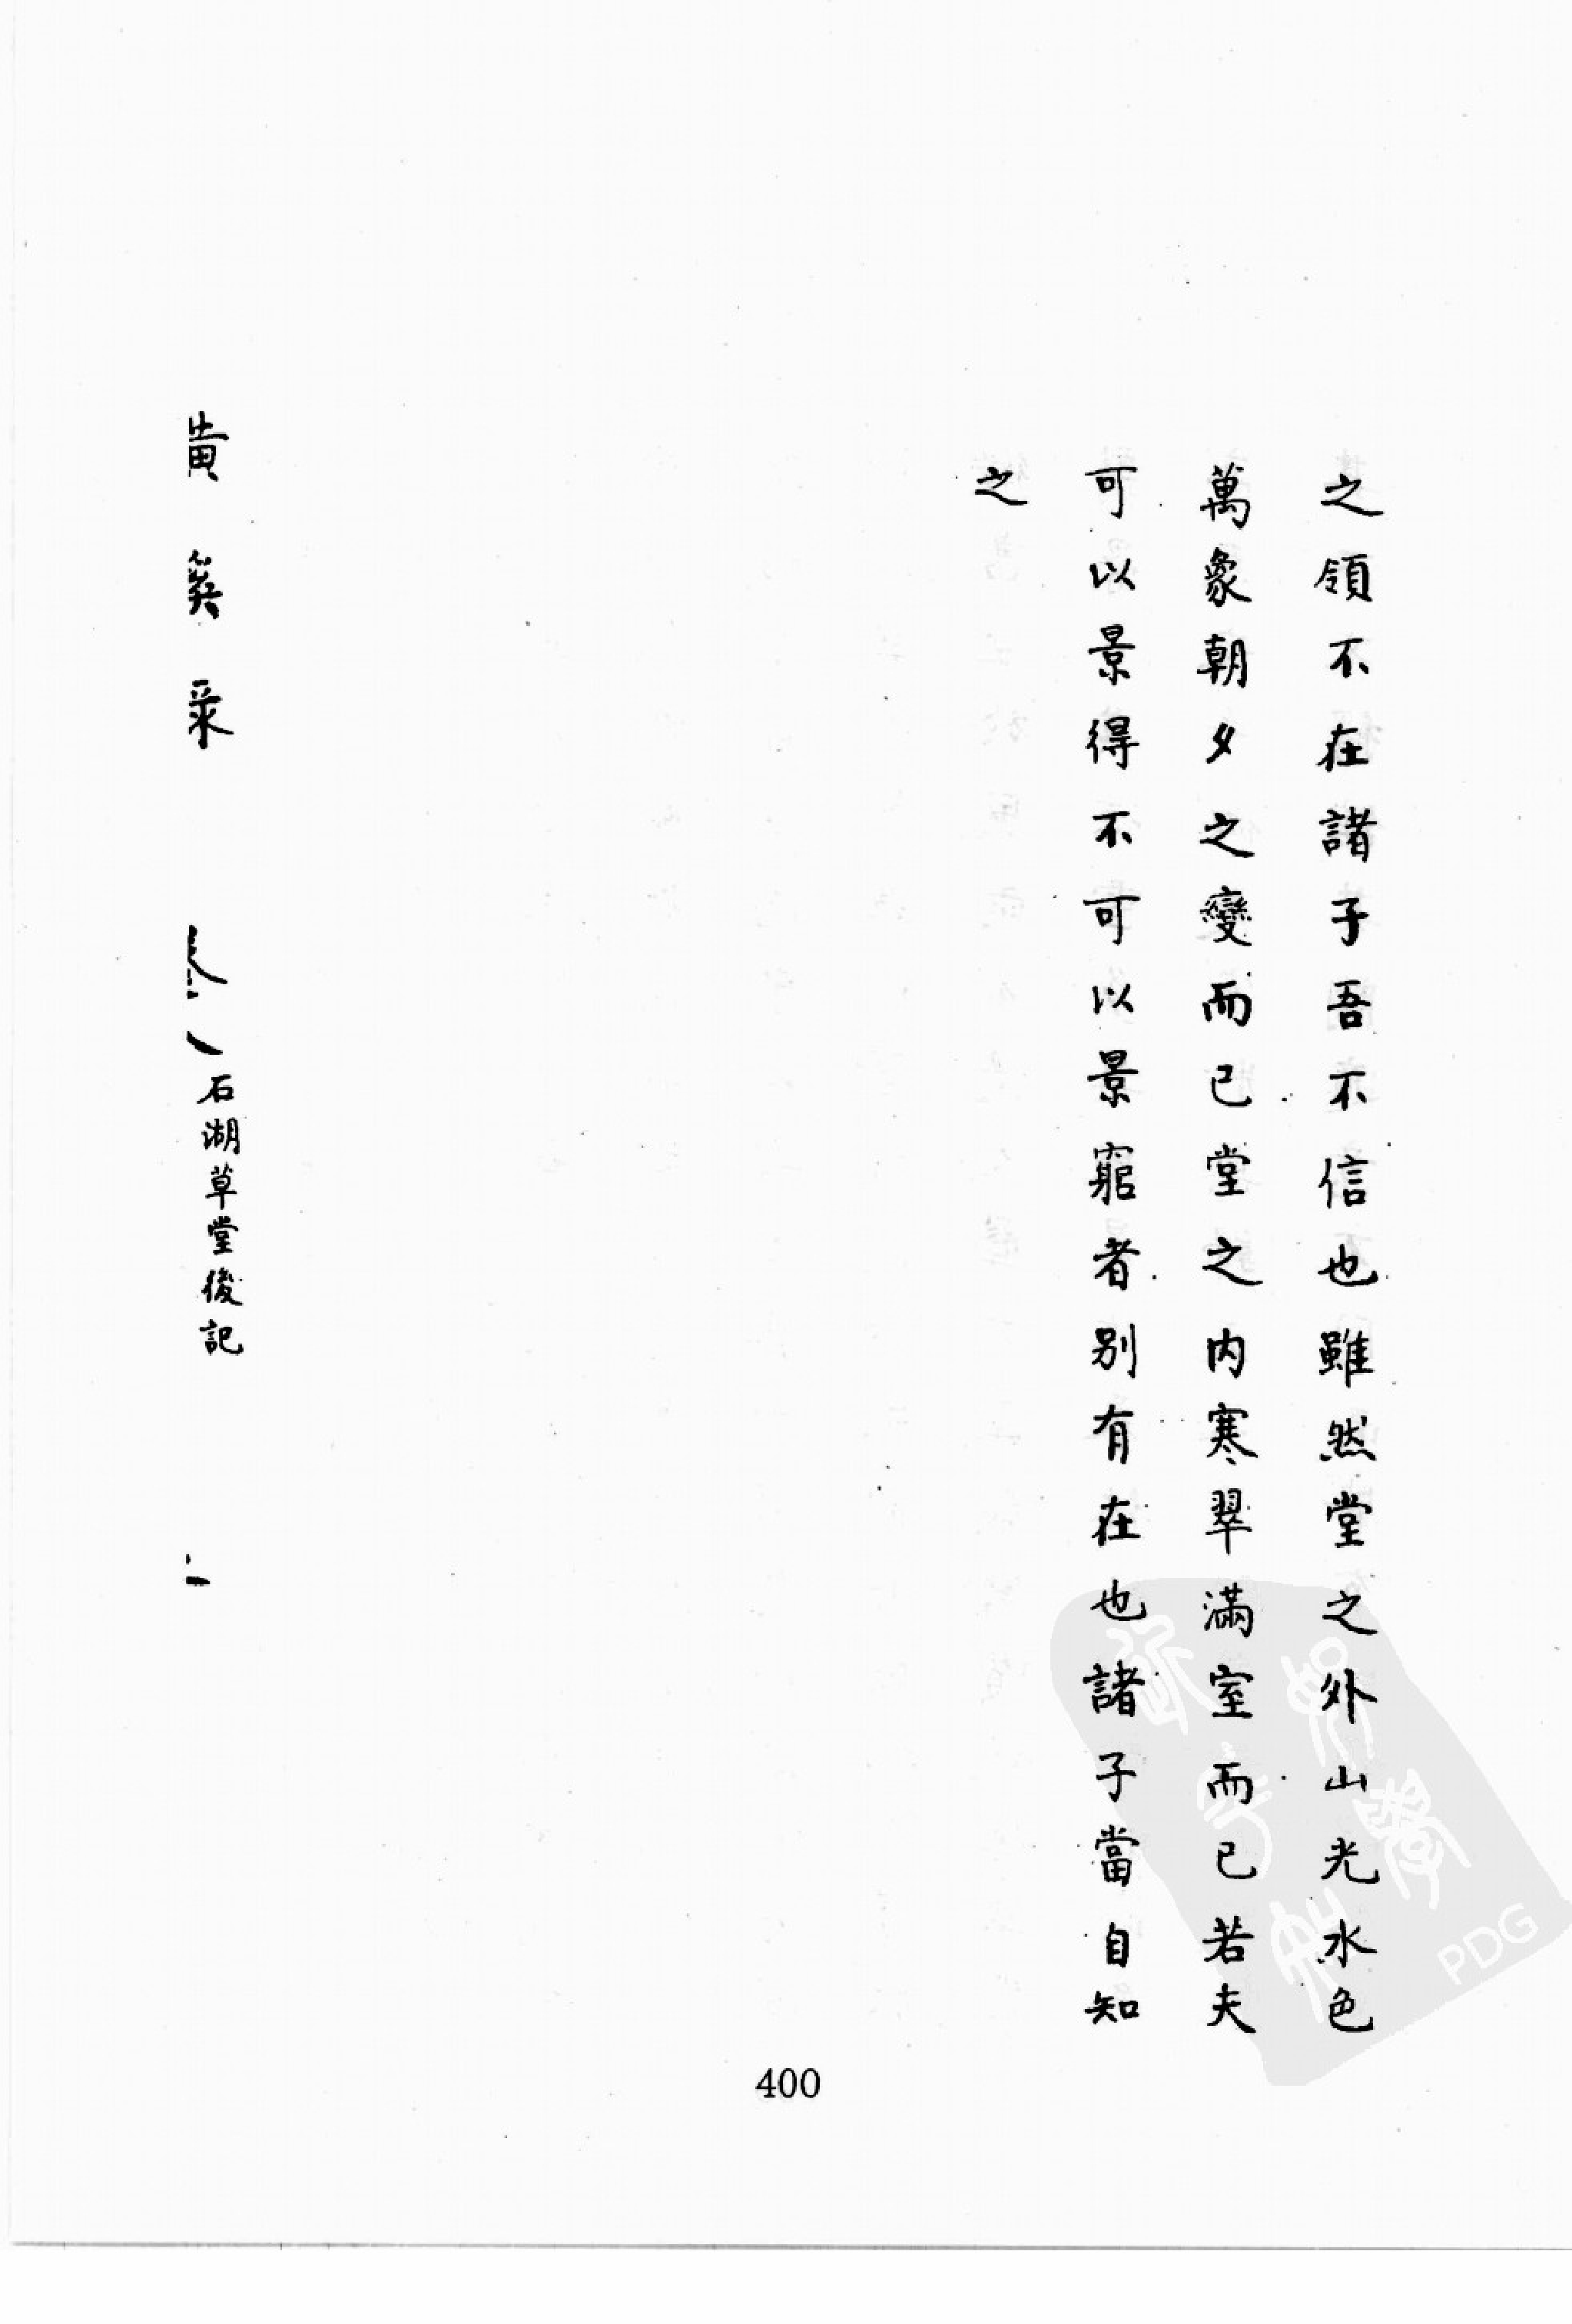 之領不在諸子吾不信也雖然堂之外山光水色
萬象朝夕之變而已堂之内寒翠滿室而已若夫
可以景得不可以景窮者别有在也諸子當自知
之
石湖草堂後記
400
PDG